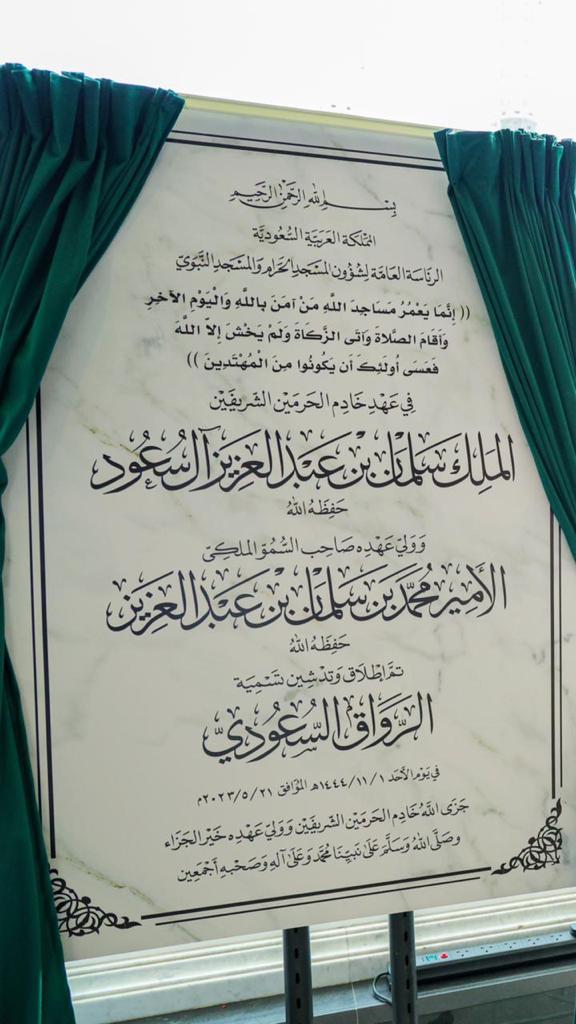 بِسْمِ اللهِ الرَّحْمٰنِ الرَّحِيْمِ
المَمْلَكَة العَرَبِيَّة السُّعُودِيَّة
الرِّئَاسَة العَامَّة لِشُؤُونِ المَسْجِدِ الحَرَامِ وَالمَسْجِدِ النَّبَوِيّ
(( إِنَّمَا يَعْمُرُ مَسَاجِدَ اللَّهِ مَنْ آمَنَ بِاللَّهِ وَالْيَوْمِ الآخِرِ
وَأَقَامَ الصَّلاةَ وَآتَى الزَّكَاةَ وَلَمْ يَخْشَ إِلاَّ اللَّهَ
فَعَسَى أُولَئِكَ أَن يَكُونُوا مِنَ الْمُهْتَدِينَ ))
فِي عَهْدِ خَادِمِ الحَرَمَيْن الشَّرِيفَيْن
المَلِك سَلمَان بْن عَبْد العَزِيز آل سُعُود
حَفِظَهُ اللهُ
وَوَلِيّ عَهْدِه صَاحِب السُّمُوّ المَلَكِيّ
الأَمِير مُحَمَّد بْن سَلمَان بْن عَبْد العَزِيز
حَفِظَهُ اللهُ
تَمَّ إِطْلَاق وَتَدْشِين تَسْمِيَة
الرِّوَاق السُّعُودِيّ
فِي يَوْم الأَحَد ١٤٤٤/١١/١هـ المُوَافِق ٢٠٢٣/٥/٢١م
جَزَى اللَّهُ خَادِم الحَرَمَيْن الشَّرِيفَيْن وَوَلِيّ عَهْدِه خَيْر الجَزَاء
وَصَلَّى اللهُ وَسَلَّمَ عَلَى نَبِيِّنَا مُحَمَّد وَعَلَى آلِهِ وَصَحْبِهِ أَجْمَعِين